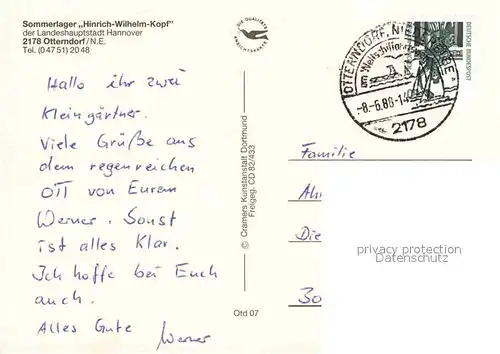 Sommerlager „Hinrich-Wilhelm-Kopf"
der Landeshauptstadt Hannover
2178 Otterndorf/N.E.
Tel. (0 47 51) 20 48
Hallo ihr zwei
Kleingärtner.
Viele Grüße aus
dem regenreichen
OTT von Eurem
Werner. Sonst
ist alles Klar.
Ich hoffe bei Euch
auch.
Alles Gute
Werner
DIE QUALITÄTS
ANSICHTSKARTE
© Cramers Kunstanstalt Dortmund
Freigeg. CD 82/433
Otd 07
OTTERNDORF,
am Weltschiffahrtsweg
-8.-6.88-14
2178
DEUTSCHE BUNDESPOST
Familie
Die
privacy protection
Datenschutz